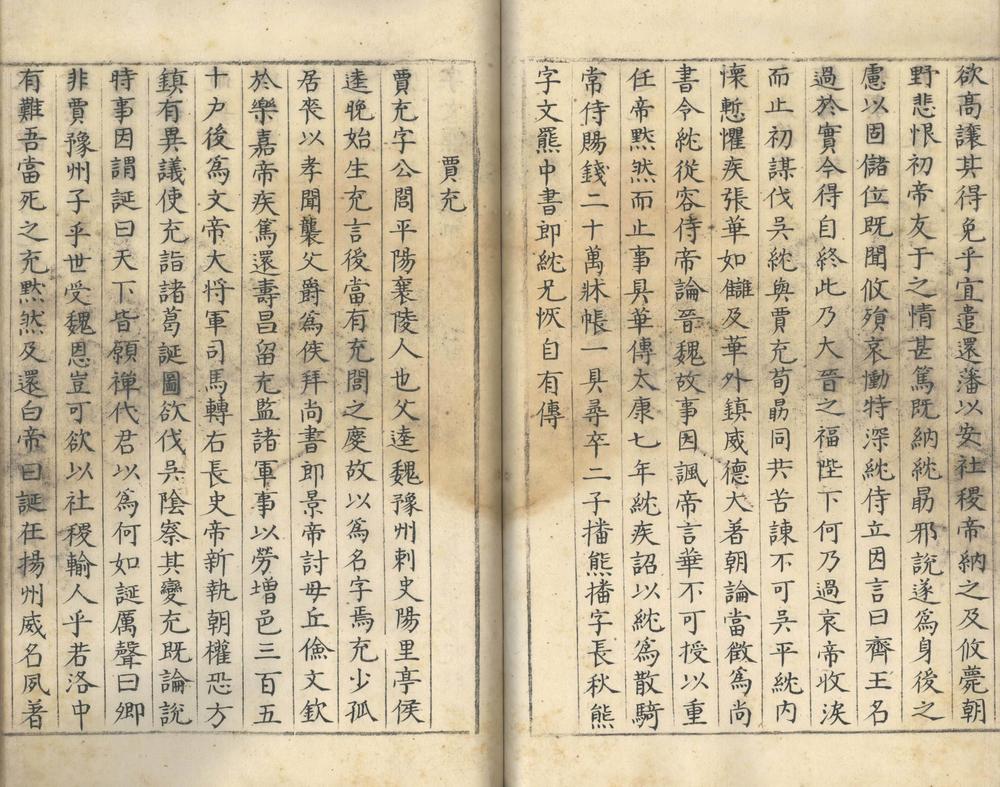 欲高讓其得免乎宜遣還藩以安社稷帝納之及攸薨朝
野悲恨初帝友于之情甚篤既納紞勗邪說遂為身後之
慮以固儲位既聞攸殞哀慟特深紞侍立因言曰齊王名
過於實今得自終此乃大晉之福陛下何乃過哀帝收淚
而止初謀伐吳紞與賈充荀勗同共苦諫不可吳平紞內
懐慙懼疾張華如讎及華外鎮威德大著朝論當徴為尚
書令紞從容侍帝論晉魏故事因諷帝言華不可授以重
任帝黙然而止事具華傳太康七年紞疾詔以紞為散騎
常侍賜錢二十萬牀帳一具尋卒二子播熊播字長秋熊
字文羆中書郎紞兄恢自有傳
賈充
賈充字公閭平陽襄陵人也父逵魏豫州刺史陽里亭侯
逵晚始生充言後當有充閭之慶故以為名字焉充少孤
居喪以孝聞襲父爵為侯拜尚書郎景帝討毋丘儉文欽
於樂嘉帝疾篤還壽昌留充監諸軍事以勞增邑三百五
十户後為文帝大将軍司馬轉右長史帝新執朝權恐方
鎮有異議使充詣諸葛誕圖欲伐吳陰察其變充既論說
時事因謂誕曰天下皆願禪代君以為何如誕厲聲曰卿
非賈豫州子乎世受魏恩豈可欲以社稷輸人乎若洛中
有難吾當死之充黙然及還白帝曰誕在揚州威名夙著